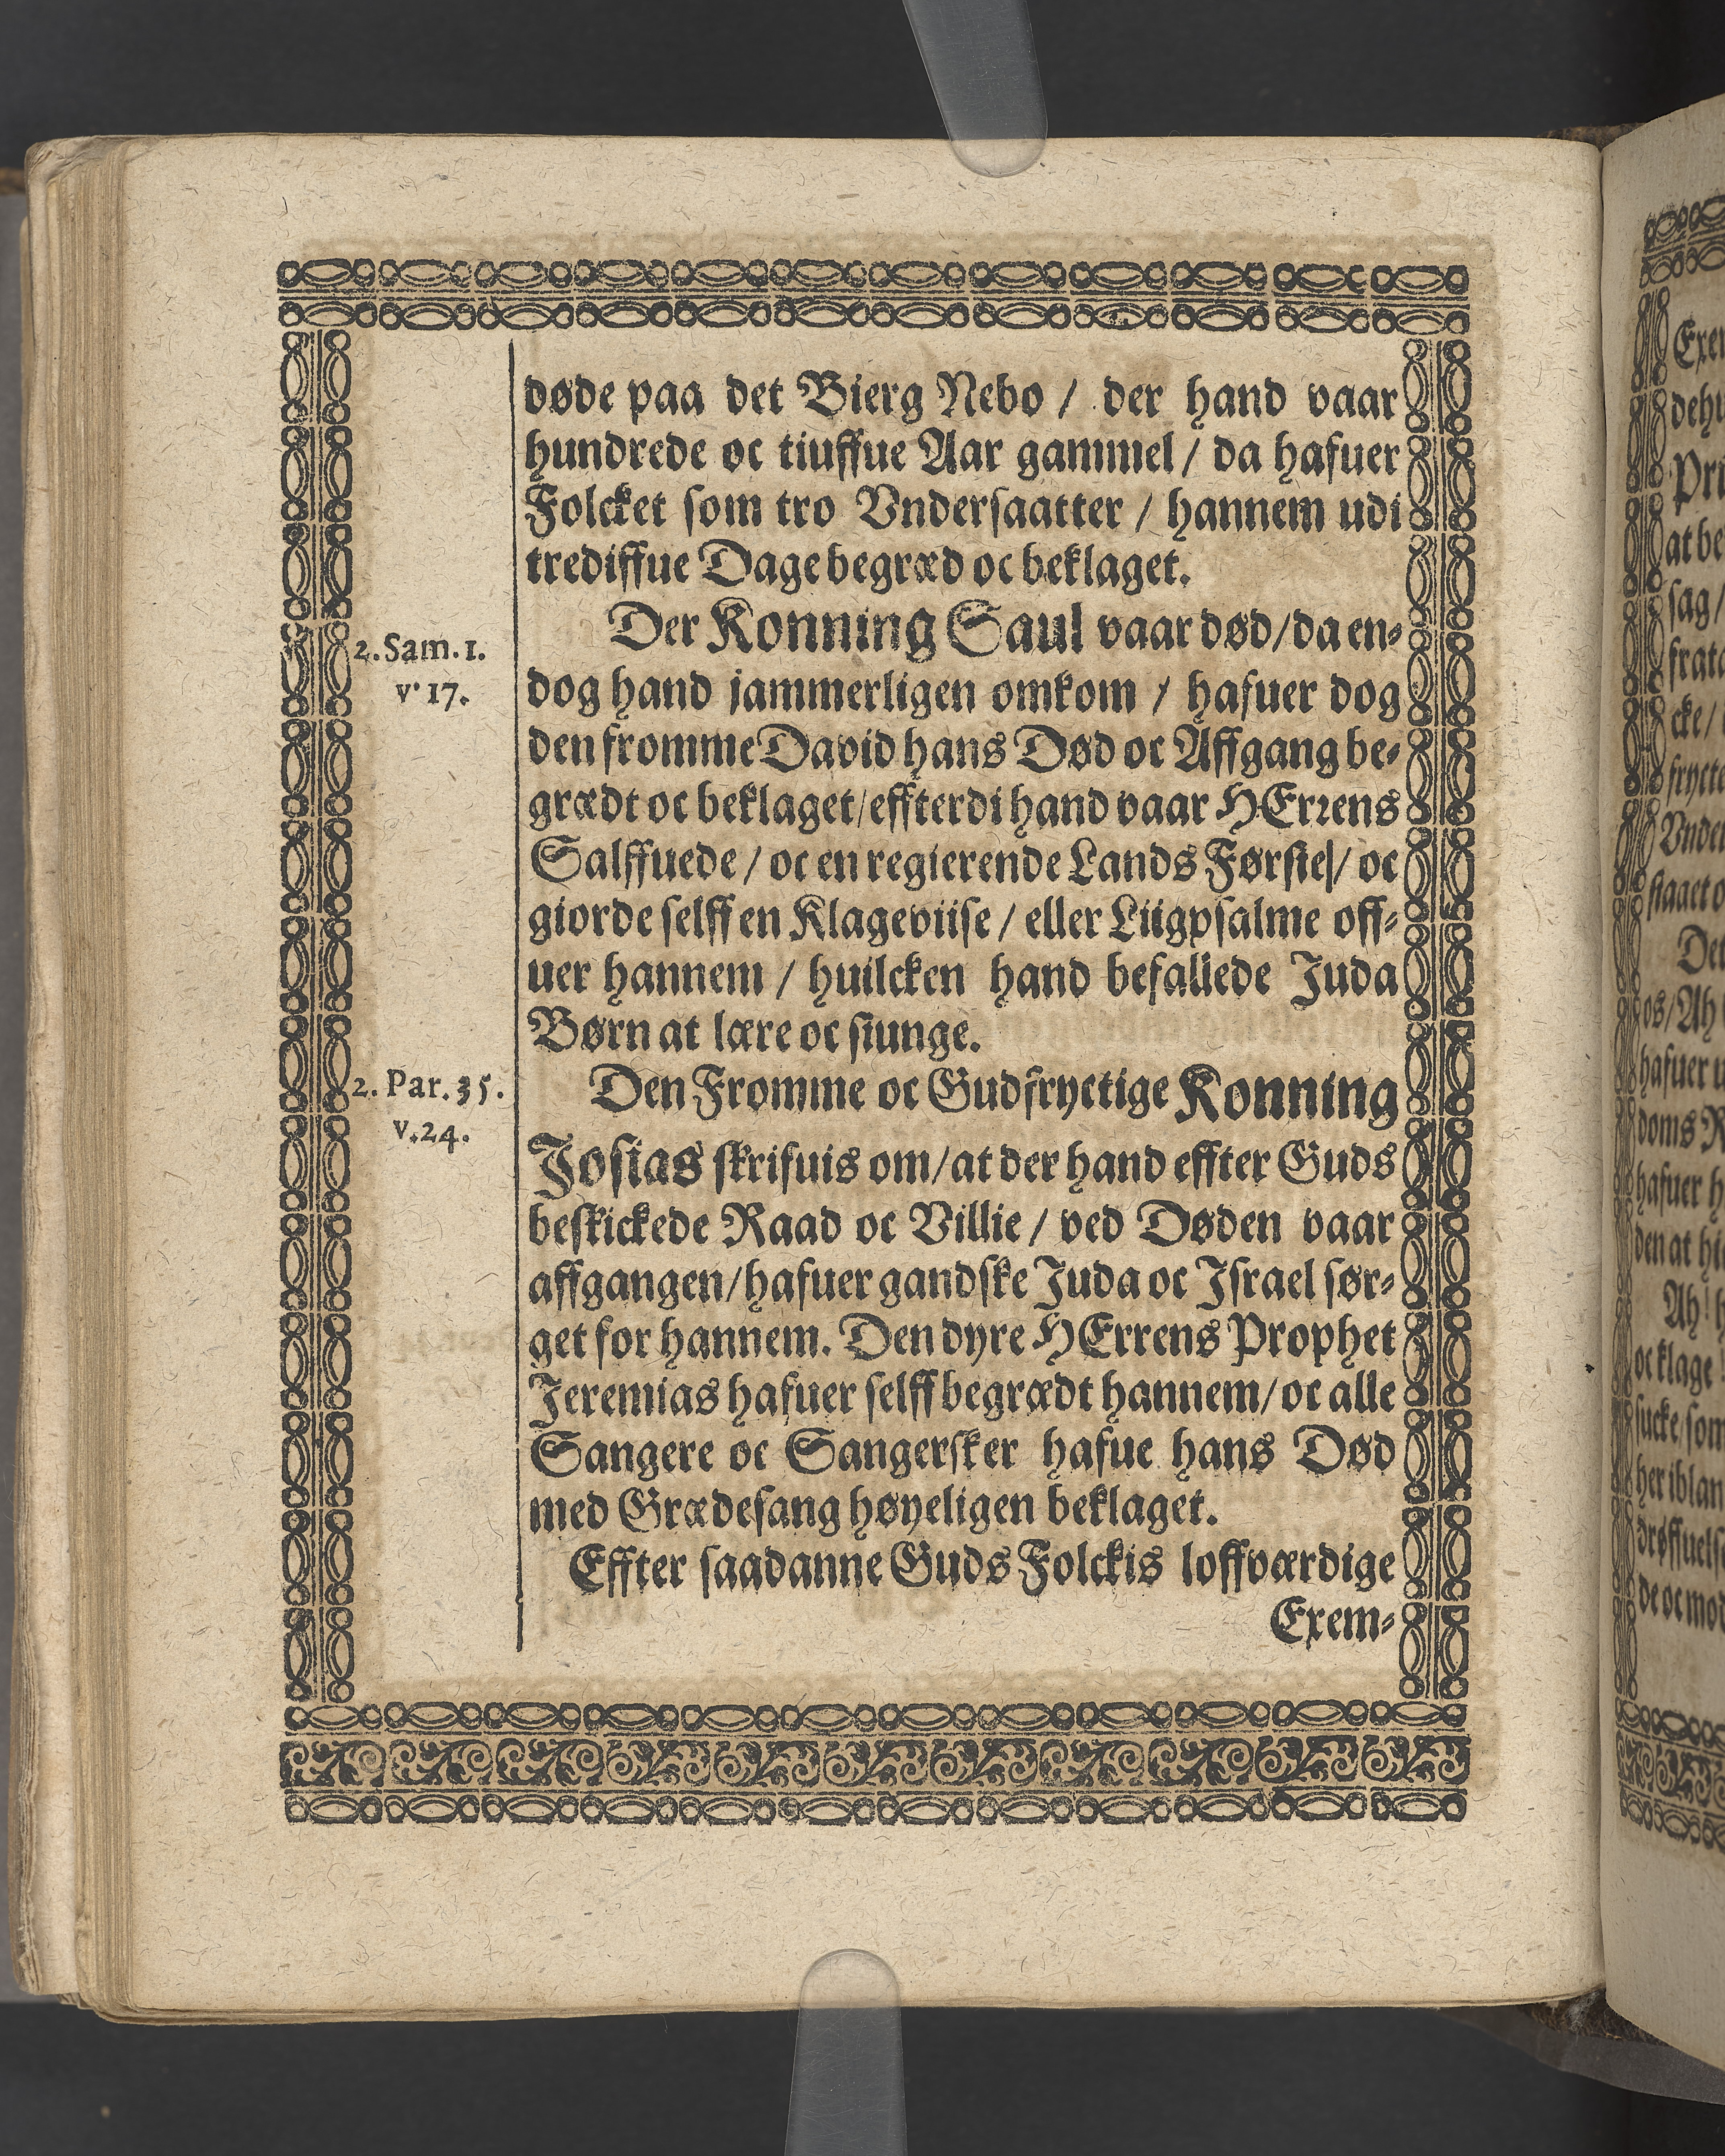 døde paa det Bierg Nebo / der hand vaar
hundrede oc tiuffue Aar gammel / da hafuer
Folcket som tro Vndersaatter / hannem udi
trediffue Dage begræd oc beklaget.
Der Konning Saul vaar død / da en-
2. Sam. 1.
v. 17.
dog hand jammerligen omkom / hafuer dog
den fromme David hans Død oc Affgang be-
grædt oc beklaget / effterdi hand vaar HErrens
Salffuede / oc en regierende Lands Første / oc
giorde selff en Klageviise / eller Liigpsalme off-
uer hannem / huilcken hand befallede Juda
Børn at lære oc siunge.
Den Fromme oc Gudfryctige Konning
2. Par. 35.
v. 24.
Josias skrifuis om / at der hand effter Guds
beskickede Raad oc Villie / ved Døden vaar
affgangen / hafuer gandske Juda oc Israel sør-
get for hannem. Den dyre HErrens Prophet
Jeremias hafuer selff begrædt hannem / oc alle
Sangere oc Sangersker hafue hans Død
med Grædesang høyeligen beklaget.
Effter saadanne Guds Folckis loffværdige
Exem-